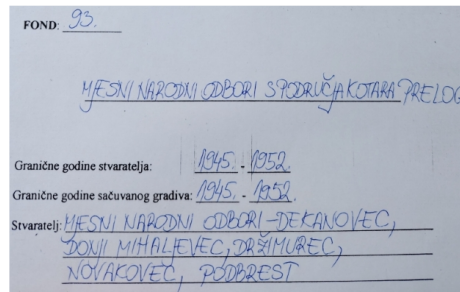 FOND: 93.
MJESNI NARODNI ODBORI S PODRUČJA KOTARA PRELOG
Granične godine stvaratelja: 1945. - 1952.
Granične godine sačuvanog gradiva: 1945. - 1952.
Stvaratelj: MJESNI NARODNI ODBORI - DEKANOVEC,
DONJI MIHALJEVEC, DRŽIMUREC,
NOVAKOVEC, PODBREST